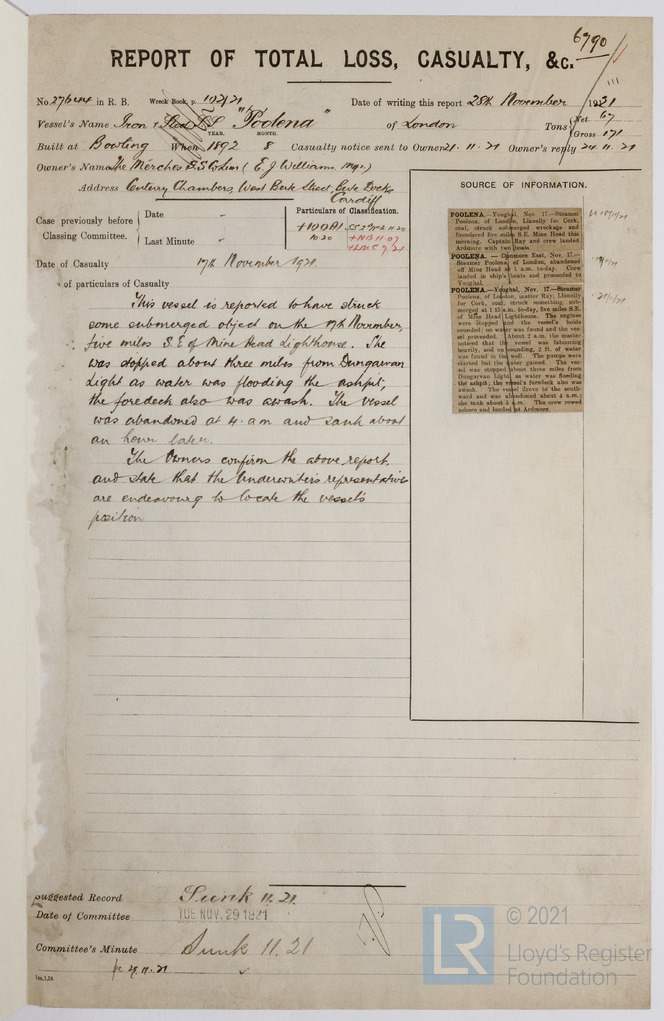 6790
REPORT OF TOTAL LOSS, CASUALTY, &c.
No. 27644 in R. B. Wreck Book, p. 1021/21 Date of writing this report 28th November 1921
Vessel's Name Iron & Steel S.S "Poolena" of London Tons Net 67 Gross 171
YEAR. MONTH.
Built at Bowling When 1892 8 Casualty notice sent to Owner 21.11.21 Owner's reply 24.11.21
Owner's Name The Merches S.S Co Lim (E. J Williams Mgr.)
Address Century Chambers, West Bute Street, Bute Docks
Cardiff
SOURCE OF INFORMATION.
Case previously before Classing Committee.
Date "
Last Minute "
Particulars of Classification.
+100A1
10.20
Date of Casualty 17th November 1921.
s of particulars of Casualty
This vessel is reported to have struck
some submerged object on the 17th November,
five miles S.E of Mine Head Lighthouse. She
was stopped about three miles from Dungarvan
Light as water was flooding the ashpit;
the foredeck also was awash. The vessel
was abandoned at 4. am and sank about
an hour later.
The Owners confirm the above report,
and state that the Underwriters representatives
are endeavourg to locate the vessel's
position
POOLENA.—Youghal, Nov. 17.—Steamer
Poolena, of London, Llanelly for Cork,
coal, struck submerged wreckage and
foundered five miles S.E. Mine Head this
morning. Captain Ray and crew landed
Ardmore with two boats.
POOLENA.—Dunmore East, Nov. 17.—
Steamer Poolena, of London, abandoned
off Mine Head at 4 a.m. to-day. Crew
landed in ship's boats and proceeded to
Youghal.
POOLENA.—Youghal, Nov. 17.—Steamer
Poolena, of London, master Ray, Llanelly
for Cork, coal, struck something sub-
merged at 1 15 a.m. to-day, five miles S.E.
of Mine Head Lighthouse. The engines
were stopped and the vessel's holds
sounded; no water was found and the ves-
sel proceeded. About 2 a.m. the master
noticed that the vessel was labouring
heavily, and on sounding, 2 ft. of water
was found in the well. The pumps were
started but the water gained. The ves-
sel was stopped about three miles from
Dungarvan Light as water was flooding
the ashpit; the vessel's foredeck also was
awash. The vessel drove to the south-
ward and was abandoned about 4 a.m.;
she sank about 5 a.m. The crew rowed
ashore and landed at Ardmore.
Suggested Record Sunk 11.21.
Date of Committee TUE NOV. 29 1921
Committee's Minute Sunk 11.21
LR
© 2021
Lloyd's Register
Foundation